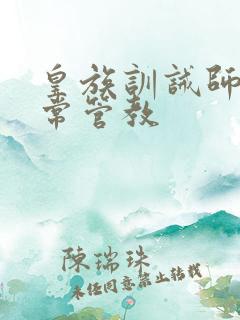 皇族訓誡師
常管教
陳瑞珠
未经同意禁止转载